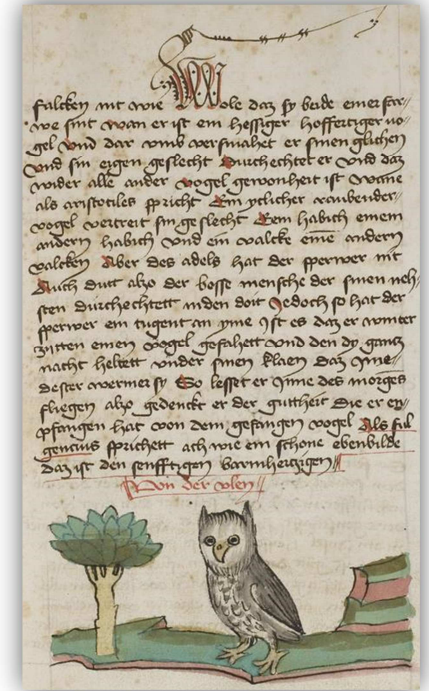 falcken nit wie Wole daz sy beide einer far⸗
we sint wan er ist ein hessiger hoffertiger vo⸗
gel vnd dar vmb versmahet er sinen glichen
vnd sin eigen geslecht durchechtet er vnd daz
wider alle ander vogel gewonheit ist wanne
als aristotiles spricht Ein yclicher raubender⸗
vogel vertreit sin geslecht Eem habich einem
andern habich vnd ein valcke eine andern
valcken Aber des adels hat der sperwer nit
Auch dutt also der bosse mensche der sinen neh⸗
sten durchechtett niden doit Jedoch so hat der
sperwer ein tugent an yme Jst es daz er winter
zitten einen vogel gefahett vnd den dy gantz
nacht heltett vnder sinen klaen daz yme⸗
dester wermer sy So lesset er yine des morges
fliegen also gedenckt er der guttheit die er en⸗
pfangen hat von dem gefangen vogel Als ful
gencius sprichett ach wie ein schone ebenbilde
daz ist den senfftigen barmhertzigen
Von der vlen